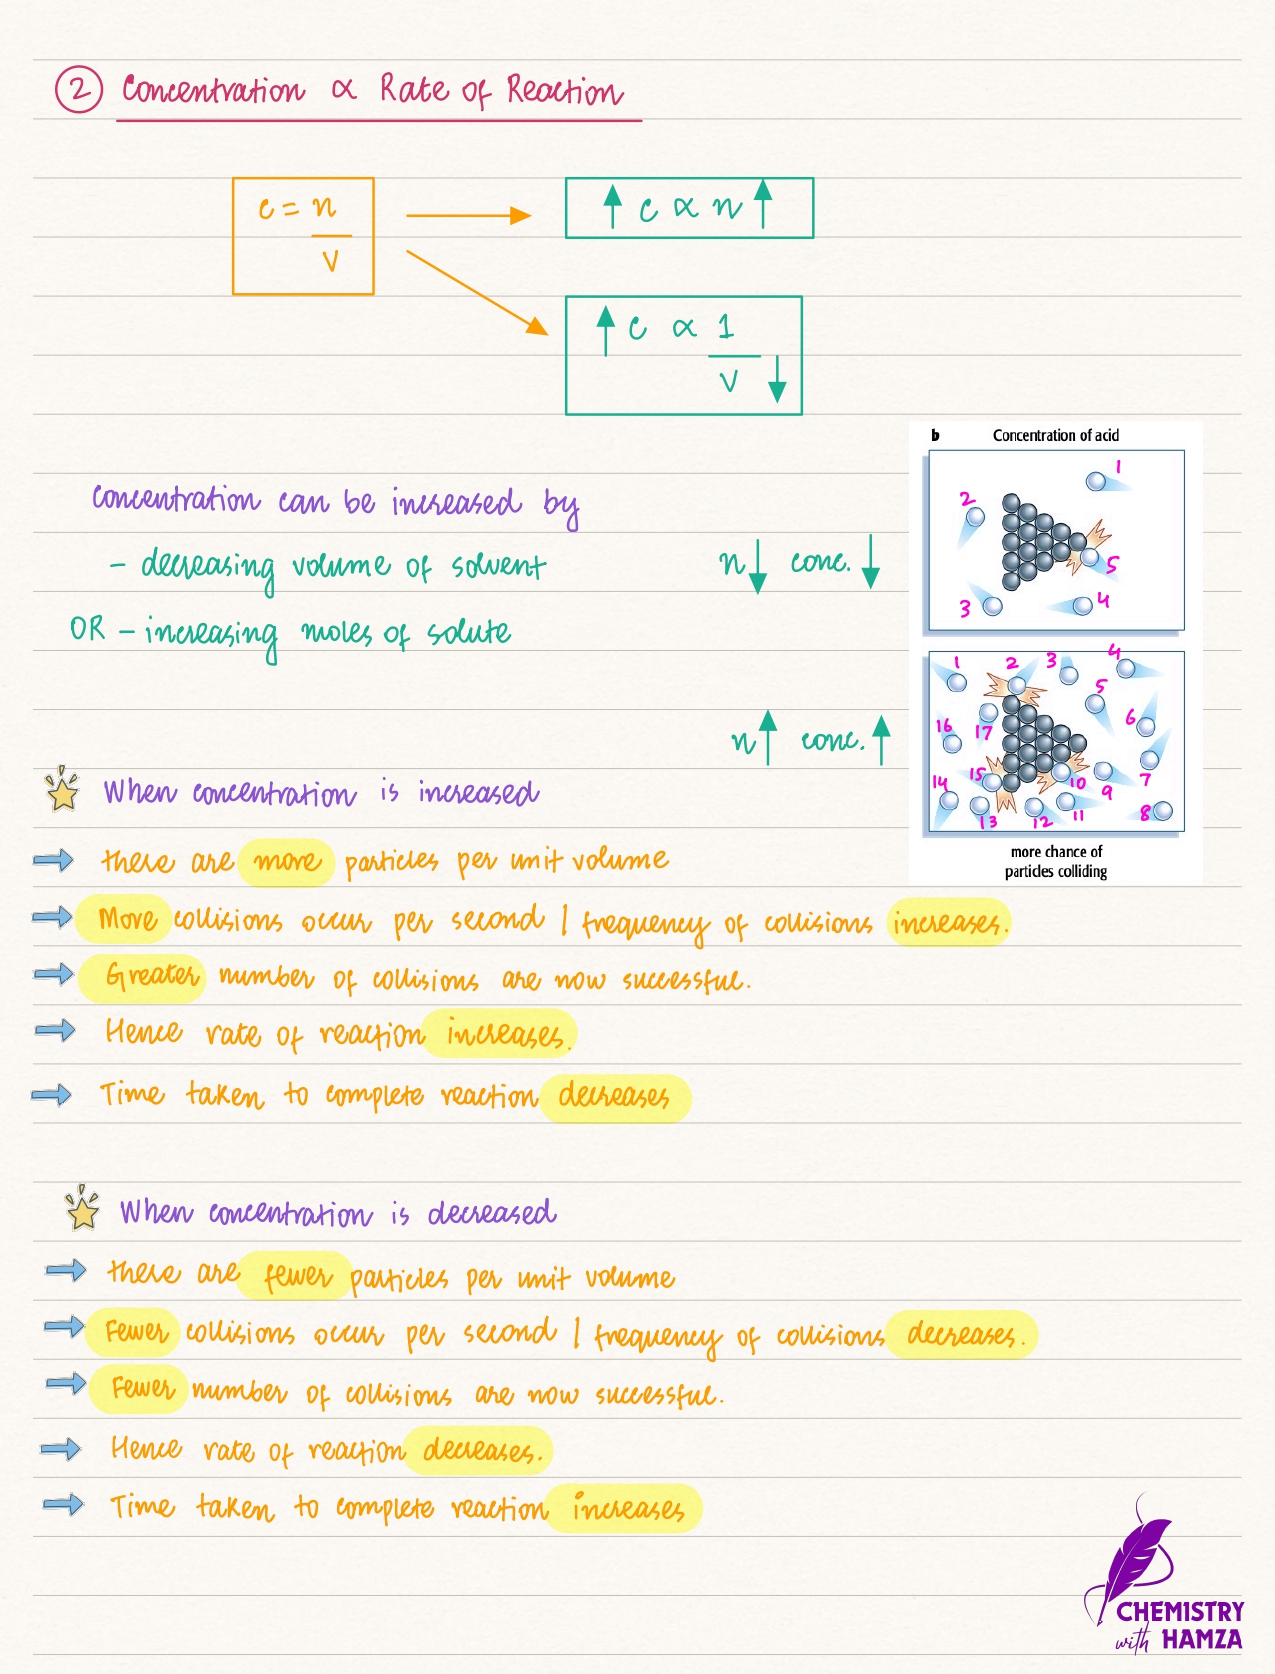 2 Concentration ∝ Rate of Reaction
c = n
v
↑ c ∝ n ↑
↑ c ∝ 1
v ↓
Concentration can be increased by
- decreasing volume of solvent
OR - increasing moles of solute
n↓ conc.↓
n↑ conc.↑
b Concentration of acid
1
2
3
4
5
1
2
3
4
5
6
7
8
9
10
11
12
13
14
15
16
17
more chance of
particles colliding
When concentration is increased
→ there are more particles per unit volume
→ More collisions occur per second / frequency of collisions increases.
→ Greater number of collisions are now successful.
→ Hence rate of reaction increases.
→ Time taken to complete reaction decreases
When concentration is decreased
→ there are fewer particles per unit volume
→ Fewer collisions occur per second / frequency of collisions decreases.
→ Fewer number of collisions are now successful.
→ Hence rate of reaction decreases.
→ Time taken to complete reaction increases
CHEMISTRY
with HAMZA